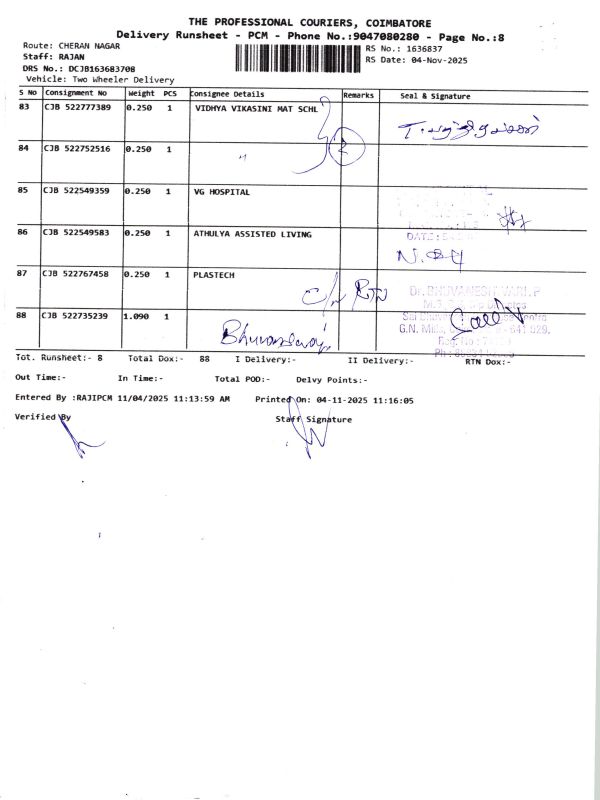 THE PROFESSIONAL COURIERS, COIMBATORE
Delivery Runsheet - PCM - Phone No.:9047080280 - Page No.:8
Route: CHERAN NAGAR
Staff: RAJAN
DRS No.: DCJB163683708
Vehicle: Two Wheeler Delivery
RS No.: 1636837
RS Date: 04-Nov-2025
S No Consignment No Weight PCS Consignee Details Remarks Seal & Signature
83 CJB 522777389 0.250 1 VIDHYA VIKASINI MAT SCHL
84 CJB 522752516 0.250 1 " 2
85 CJB 522549359 0.250 1 VG HOSPITAL
86 CJB 522549583 0.250 1 ATHULYA ASSISTED LIVING
DATE:
87 CJB 522767458 0.250 1 PLASTECH
C/n RTN
Dr. BHUVANESHWARI. P
88 CJB 522735239 1.090 1
G.N. Mills, - 641 029.
Reg. No :
Ph :
Tot. Runsheet:- 8 Total Dox:- 88 I Delivery:- II Delivery:- RTN Dox:-
Out Time:- In Time:- Total POD:- Delvy Points:-
Entered By :RAJIPCM 11/04/2025 11:13:59 AM Printed On: 04-11-2025 11:16:05
Verified By Staff Signature